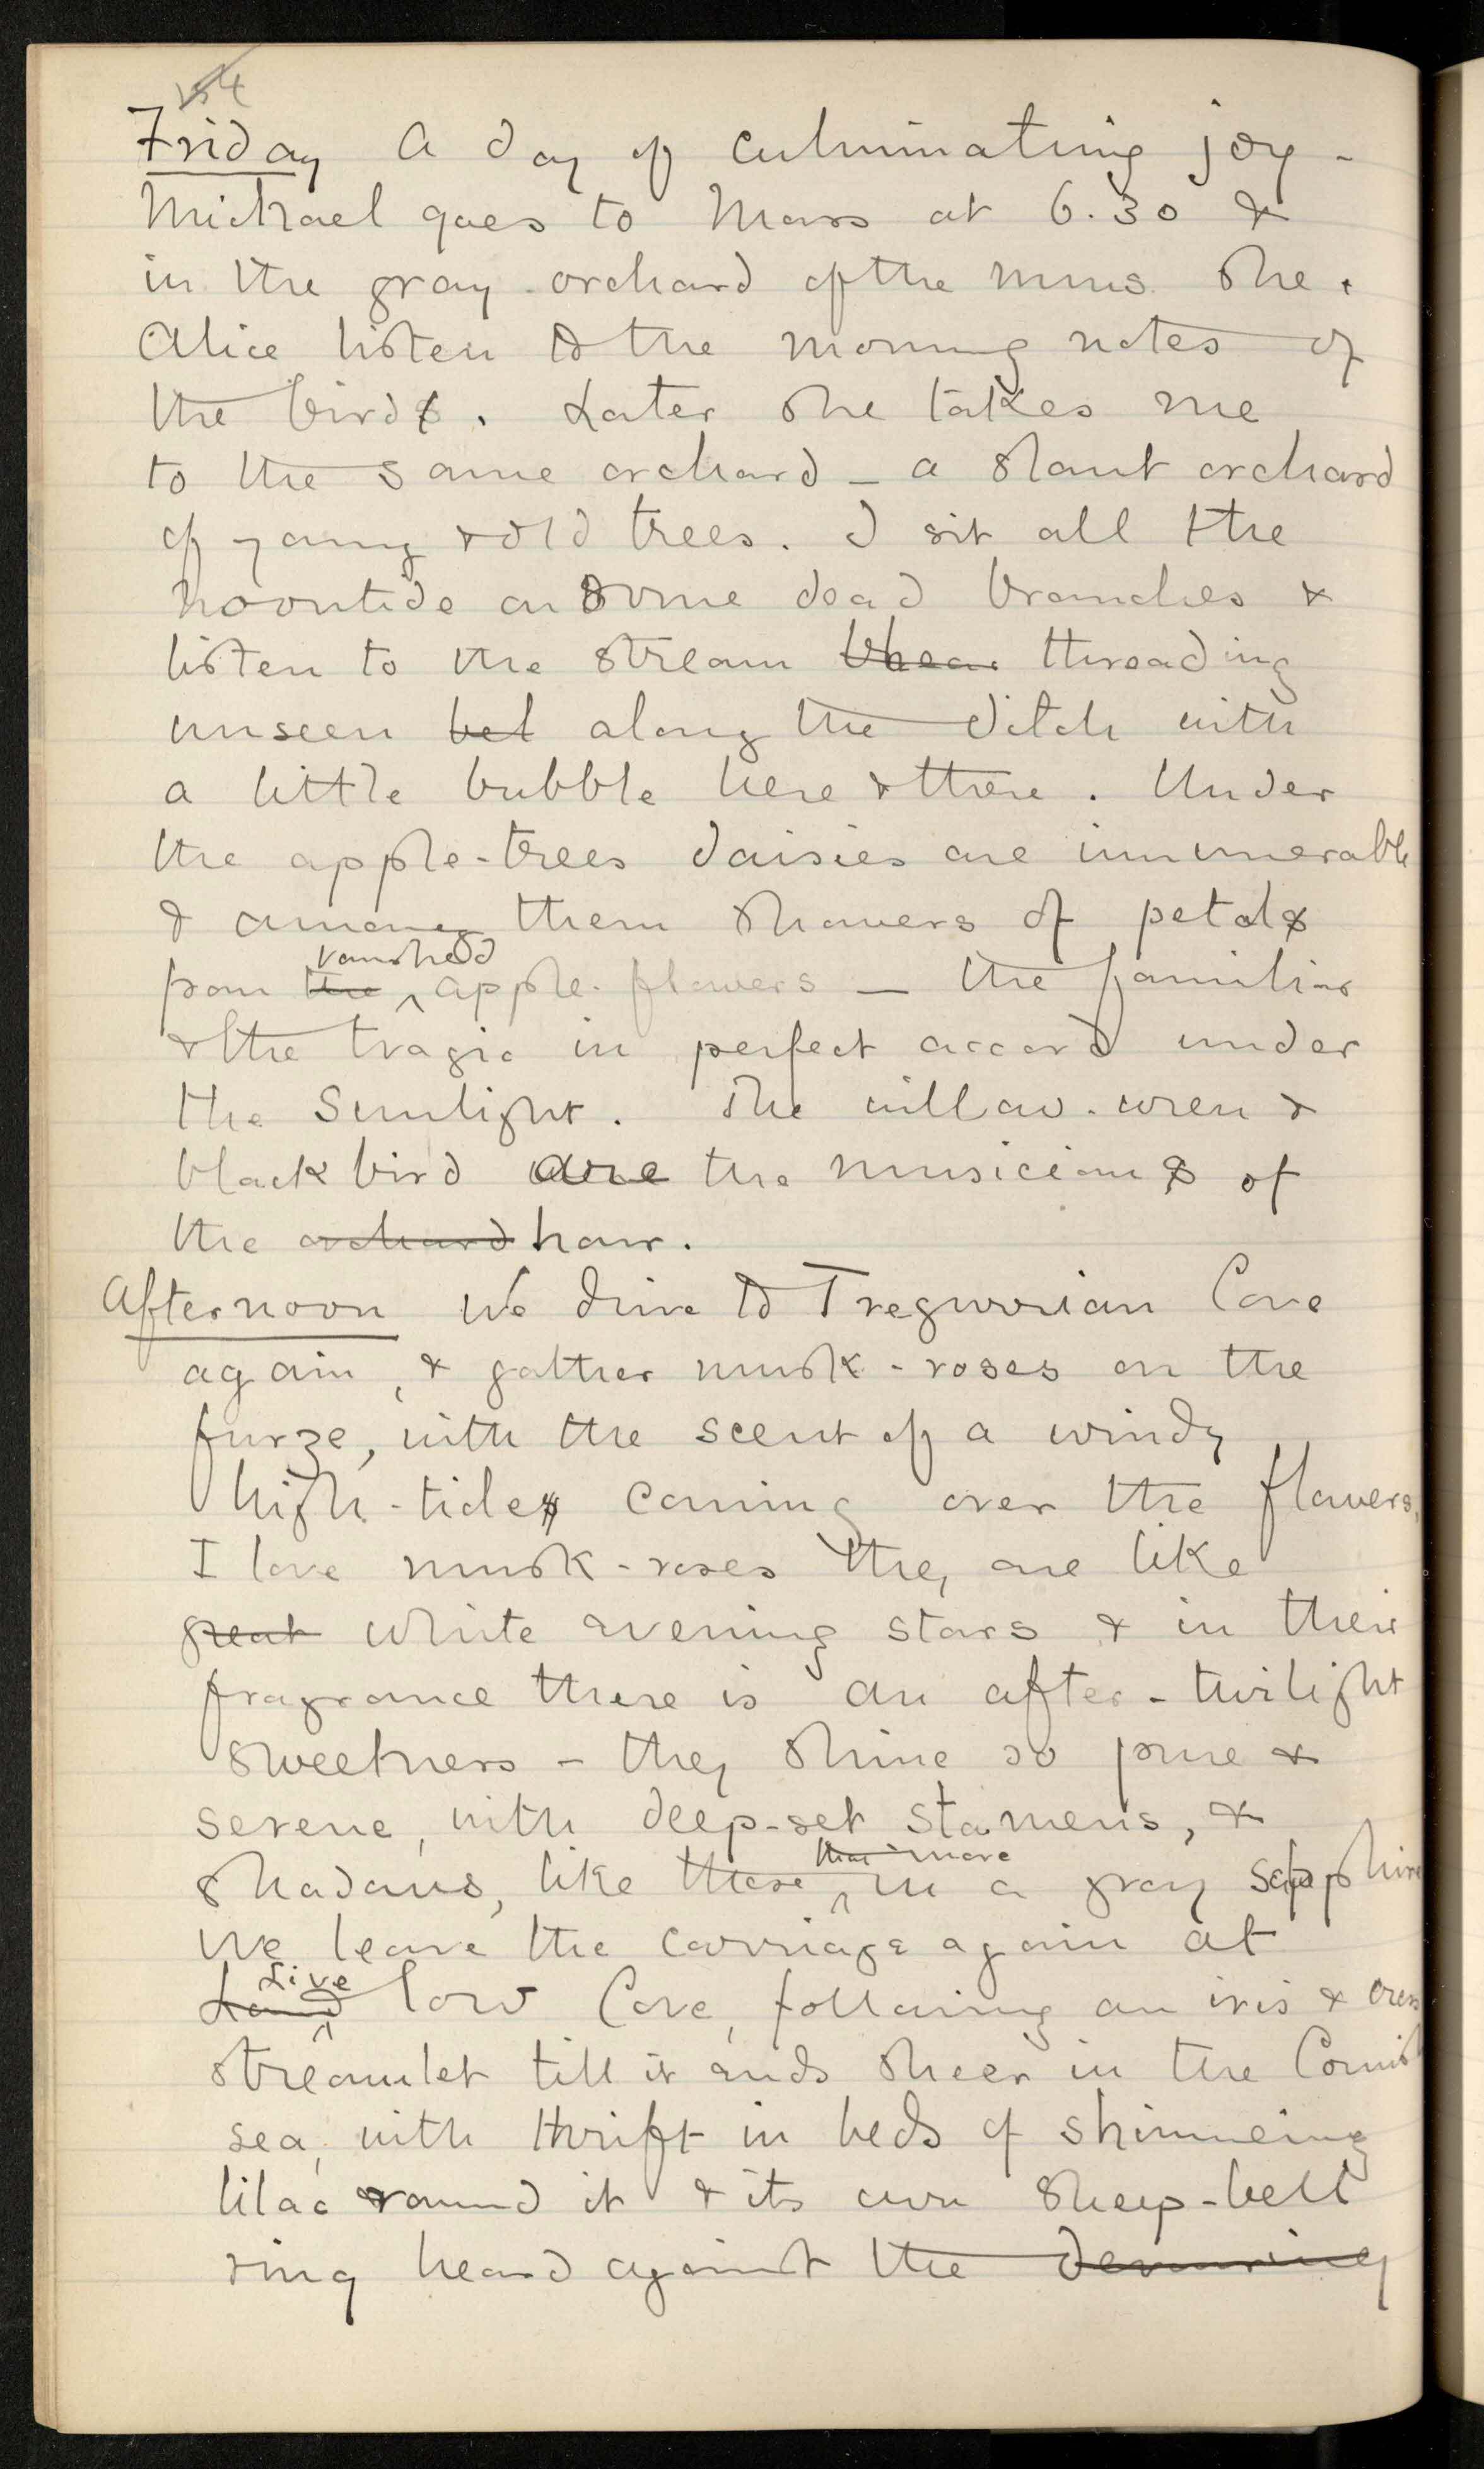 Friday A day of culminating joy -
Michael goes to Mass at 6.30 &
in the gray orchard of the nuns she &
Alice listen to the morning notes of
the birds. Later she takes me
to the same orchard - a slant orchard
of young & old trees. I sit all the
noontide on some dead branches &
listen to the stream threading
unseen bel along the ditch with
a little bubble here & there. Under
the apple-trees daisies are innumerable
& among them showers of petals
vanished
from the apple-flowers - the familiar
& the tragic in perfect accord under
the sunlight. The willow-wren &
blackbird are the musicians of
the orchard hour.
Afternoon We drive to Tregwrrian Cove
again, & gather musk-roses on the
furze, with the scent of a windy
high-tide coming over the flowers,
I love musk-roses they are like
great white evening stars & in their
fragrance there is an after-twilight
sweetness - they shine so pure &
serene, with deep-set stamens, &
that move
shadows, like those in a gray sapphire
We leave the carriage again at
Live
Land low Cove, following an iris & cress
streamlet till it ends sheer in the Cornish
sea, with thrift in beds of shimmering
lilac round it & its own sheep-bell
ring heard against the devouring